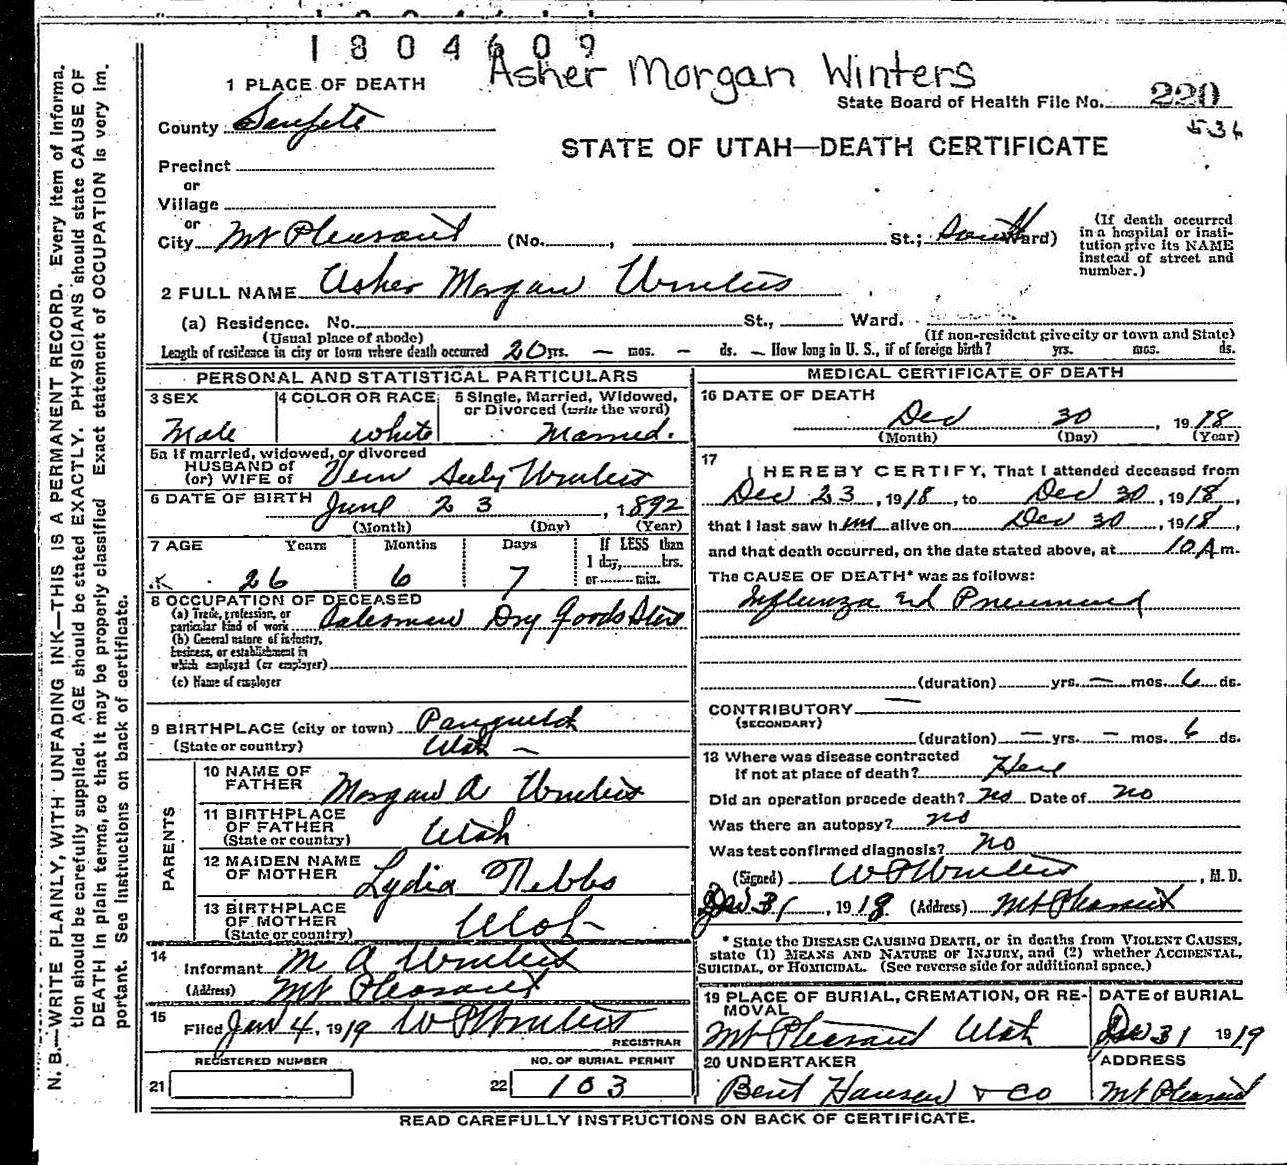 1804609
Asher Morgan Winters
1 PLACE OF DEATH
State Board of Health File No. 220
536
County Sanpete
STATE OF UTAH—DEATH CERTIFICATE
Precinct
or
Village
or
City Mt Pleasant (No. , St.; South Ward)
(If death occurred in a hospital or insti-
tution give its NAME
instead of street and
number.)
2 FULL NAME Asher Morgan Winters
(a) Residence. No. St., Ward.
(Usual place of abode) (If non-resident give city or town and State)
Length of residence in city or town where death occurred 20 yrs. — mos. — ds. — How long in U. S., if of foreign birth? yrs. mos. ds.
PERSONAL AND STATISTICAL PARTICULARS
3 SEX 4 COLOR OR RACE 5 Single, Married, Widowed,
or Divorced (write the word)
Male white Married.
5a If married, widowed, or divorced
HUSBAND of
(or) WIFE of Seely Winters
6 DATE OF BIRTH June 23, 1892
(Month) (Day) (Year)
7 AGE Years Months Days If LESS than
1 day, hrs.
or min.
26 6 7
8 OCCUPATION OF DECEASED
(a) Trade, profession, or
particular kind of work Salesman Dry Goods Store
(b) General nature of industry,
business, or establishment in
which employed (or employer)
(c) Name of employer
9 BIRTHPLACE (city or town) Panguitch
(State or country) Utah —
PARENTS
10 NAME OF
FATHER Morgan A Winters
11 BIRTHPLACE
OF FATHER
(State or country) Utah
12 MAIDEN NAME
OF MOTHER Lydia Tebbs
13 BIRTHPLACE
OF MOTHER
(State or country) Utah
14
Informant M A Winters
(Address) Mt Pleasant
15
Filed Jan 4, 1919 W P Winters
REGISTRAR
REGISTERED NUMBER NO. OF BURIAL PERMIT
21 22 103
MEDICAL CERTIFICATE OF DEATH
16 DATE OF DEATH
Dec 30, 1918
(Month) (Day) (Year)
17
I HEREBY CERTIFY, That I attended deceased from
Dec 23, 1918, to Dec 30, 1918,
that I last saw him alive on Dec 30, 1918,
and that death occurred, on the date stated above, at 10 A m.
The CAUSE OF DEATH* was as follows:
Influenza and Pneumonia
(duration) yrs. — mos. 6 ds.
CONTRIBUTORY —
(SECONDARY)
(duration) — yrs. — mos. 6 ds.
18 Where was disease contracted
if not at place of death? Here
Did an operation precede death? no Date of no
Was there an autopsy? no
Was test confirmed diagnosis? no
(Signed) W P Winters, M. D.
Dec 31, 1918 (Address) Mt Pleasant
* State the DISEASE CAUSING DEATH, or in deaths from VIOLENT CAUSES,
state (1) MEANS AND NATURE OF INJURY, and (2) whether ACCIDENTAL,
SUICIDAL, or HOMICIDAL. (See reverse side for additional space.)
19 PLACE OF BURIAL, CREMATION, OR RE-
MOVAL
Mt Pleasant Utah
DATE of BURIAL
Dec 31 1919
20 UNDERTAKER
Bent Hansen & Co
ADDRESS
Mt Pleasant
READ CAREFULLY INSTRUCTIONS ON BACK OF CERTIFICATE.
N. B.—WRITE PLAINLY, WITH UNFADING INK—THIS IS A PERMANENT RECORD. Every item of informa-
tion should be carefully supplied. AGE should be stated EXACTLY. PHYSICIANS should state CAUSE OF
DEATH in plain terms, so that it may be properly classified Exact statement of OCCUPATION is very im-
portant. See instructions on back of certificate.